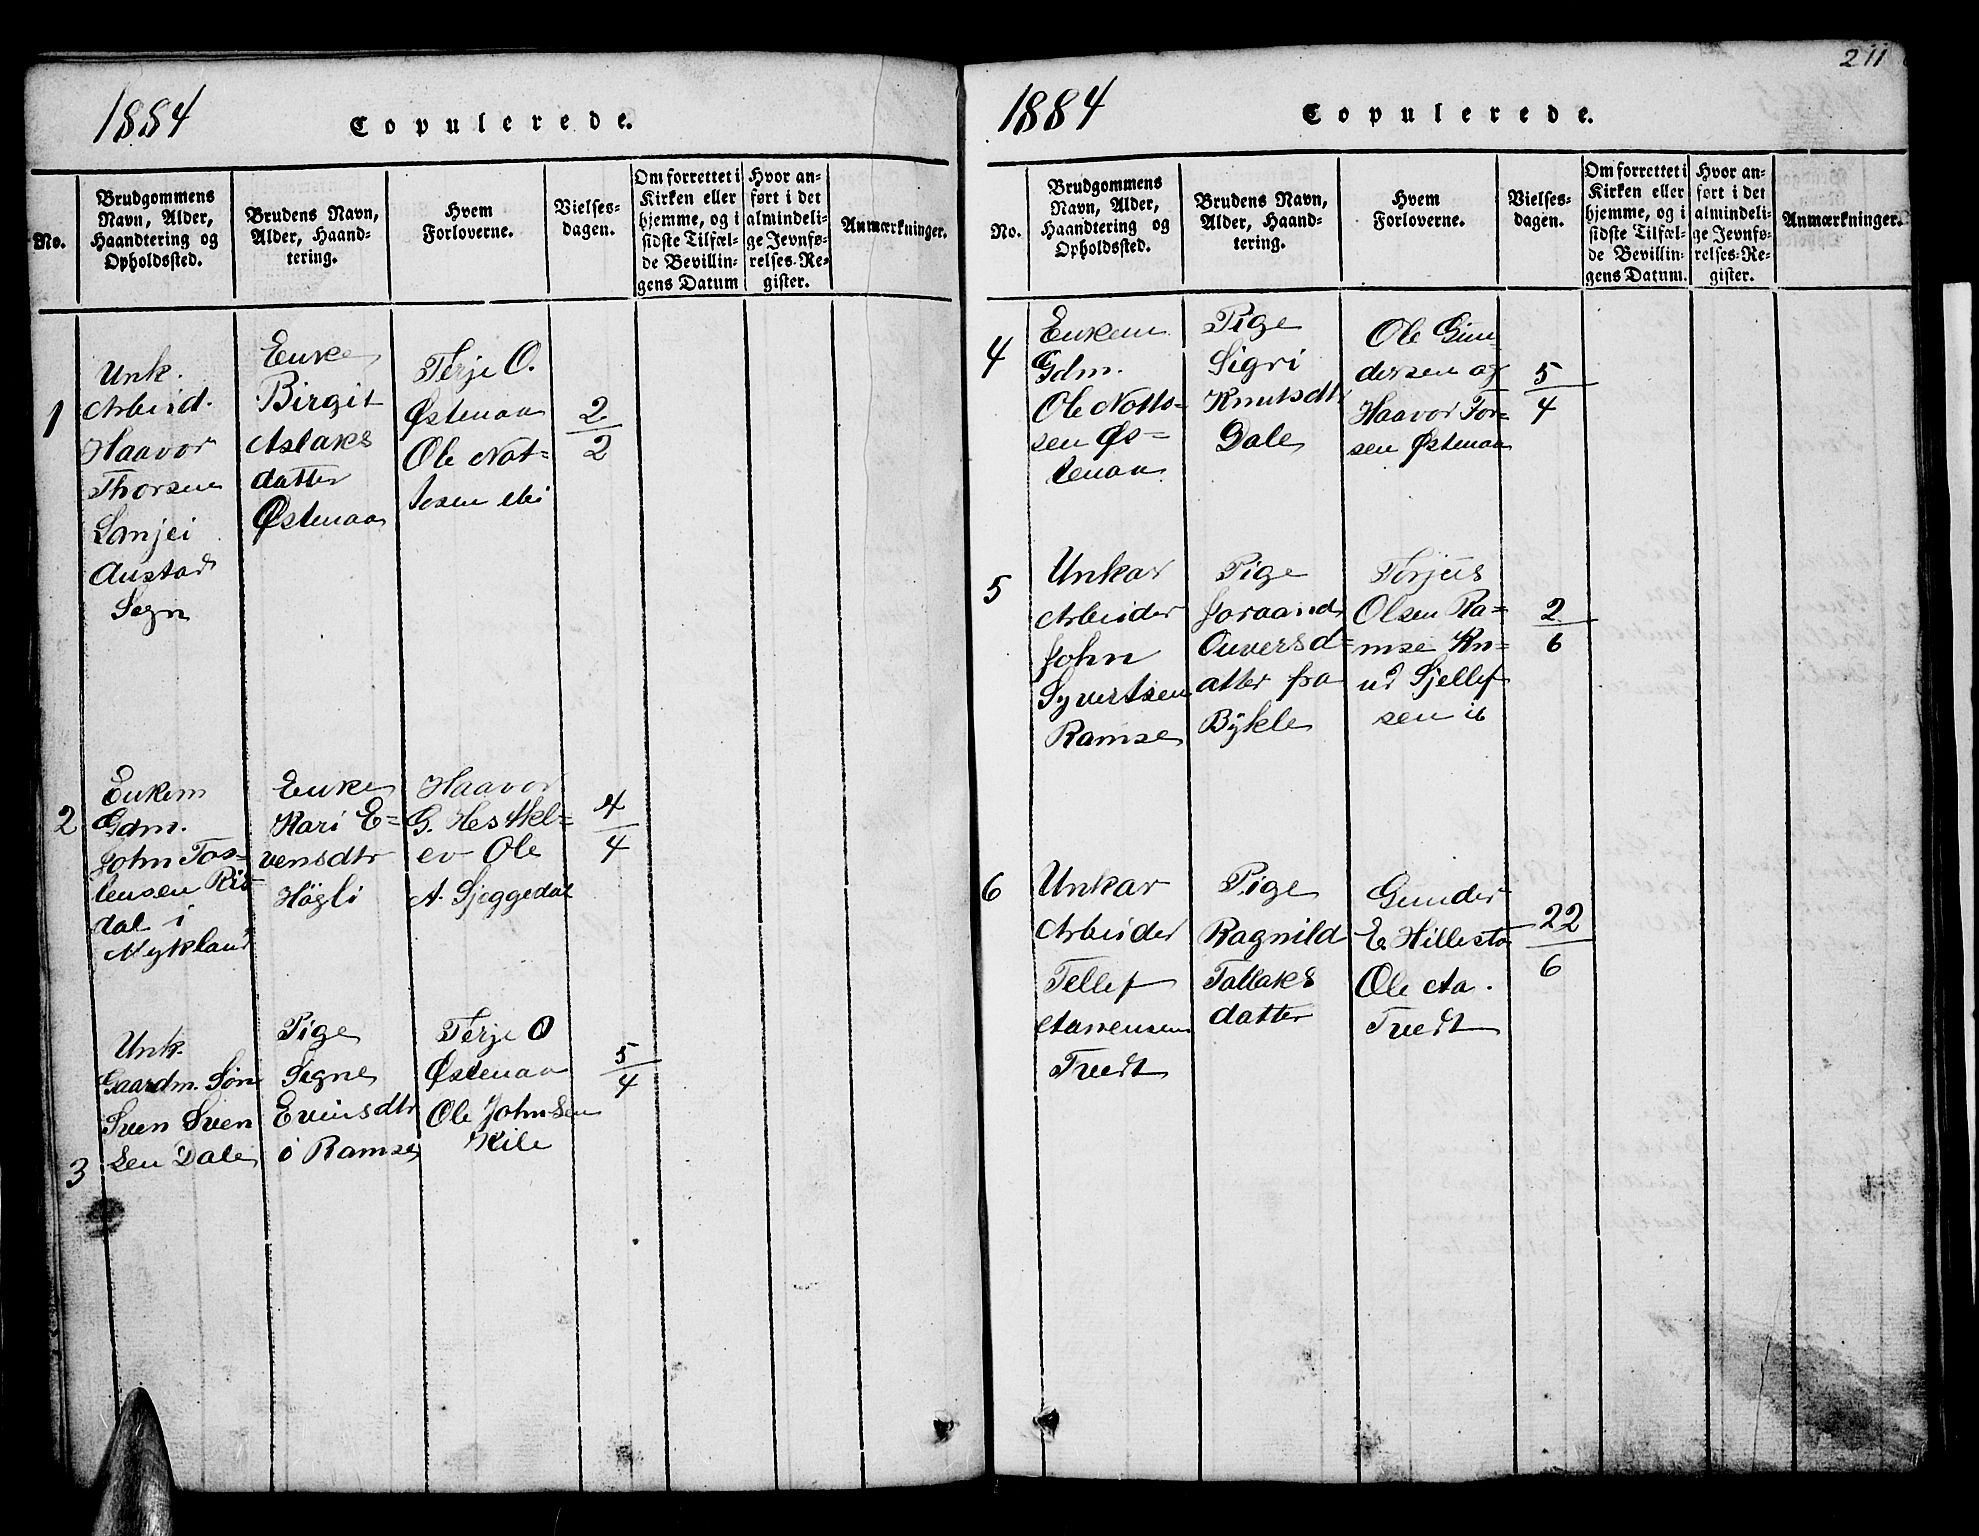 1884
Copulerede.
No.
Brudgommens
Navn, Alder,
Haandtering og
Opholdssted.
Brudens Navn,
Alder, Haand-
tering.
Hvem
Forloverne.
Vielses-
dagen.
Om forrettet i
Kirken eller
hjemme, og i
sidste Tilfæl-
de Bevillin-
gens Datum
Hvor an-
ført i det
almindeli-
ge Jevnfø-
relses-Re-
gister.
Anmærkninger.
1
Unk.
Arbeid.
Haavor
Thorsen
Lanjei
Austad
Sogn
Enke
Birgit
Aslaks
datter
Østenaa
Terje O.
Østenaa
Ole Not-
tosen ibi
2
2
2
Enkem
Gdm.
John Tos-
lensen Ris
dal i
Mykland
Enke
Kari E-
vensdtr
Högli
Haavor
G. Hestkl-
ev Ole
A. Sjeggedal
4
4
3
Unk.
Gaardm. Søn
Sven Sven
sen Dale
Pige
Signe
Evensdtr
ö Ramse
Terje O
Østenaa
Ole Johnsen
Kile
5
4
211
1884
Copulerede.
No.
Brudgommens
Navn, Alder,
Haandtering og
Opholdssted.
Brudens Navn,
Alder, Haand-
tering.
Hvem
Forloverne.
Vielses-
dagen.
Om forrettet i
Kirken eller
hjemme, og i
sidste Tilfæl-
de Bevillin-
gens Datum.
Hvor an-
ført i det
almindeli-
ge Jevnfø-
relses-Re-
gister.
Anmærkninger.
4
Enkem
Gdm.
Ole Notto-
sen Øs-
tenaa
Pige
Sigri
Knutsdtr
Dale
Ole Gun-
dersen og
Haavor Tor-
sen Østenaa
5
4
5
Unkar
Arbeider
John
Syvertsen
Ramse
Pige
Joraand
Ouversd-
atter fra
Bykle
Torjus
Olsen Ra-
mse Kn-
ud Sjellef
sen ib
2
6
6
Unkar
Arbeider
Tellef
Aanensen
Tvedt
Pige
Ragnild
Tallaks
datter
Gunder
E Hillesta
Ole Aa.
Tvedt
22
6